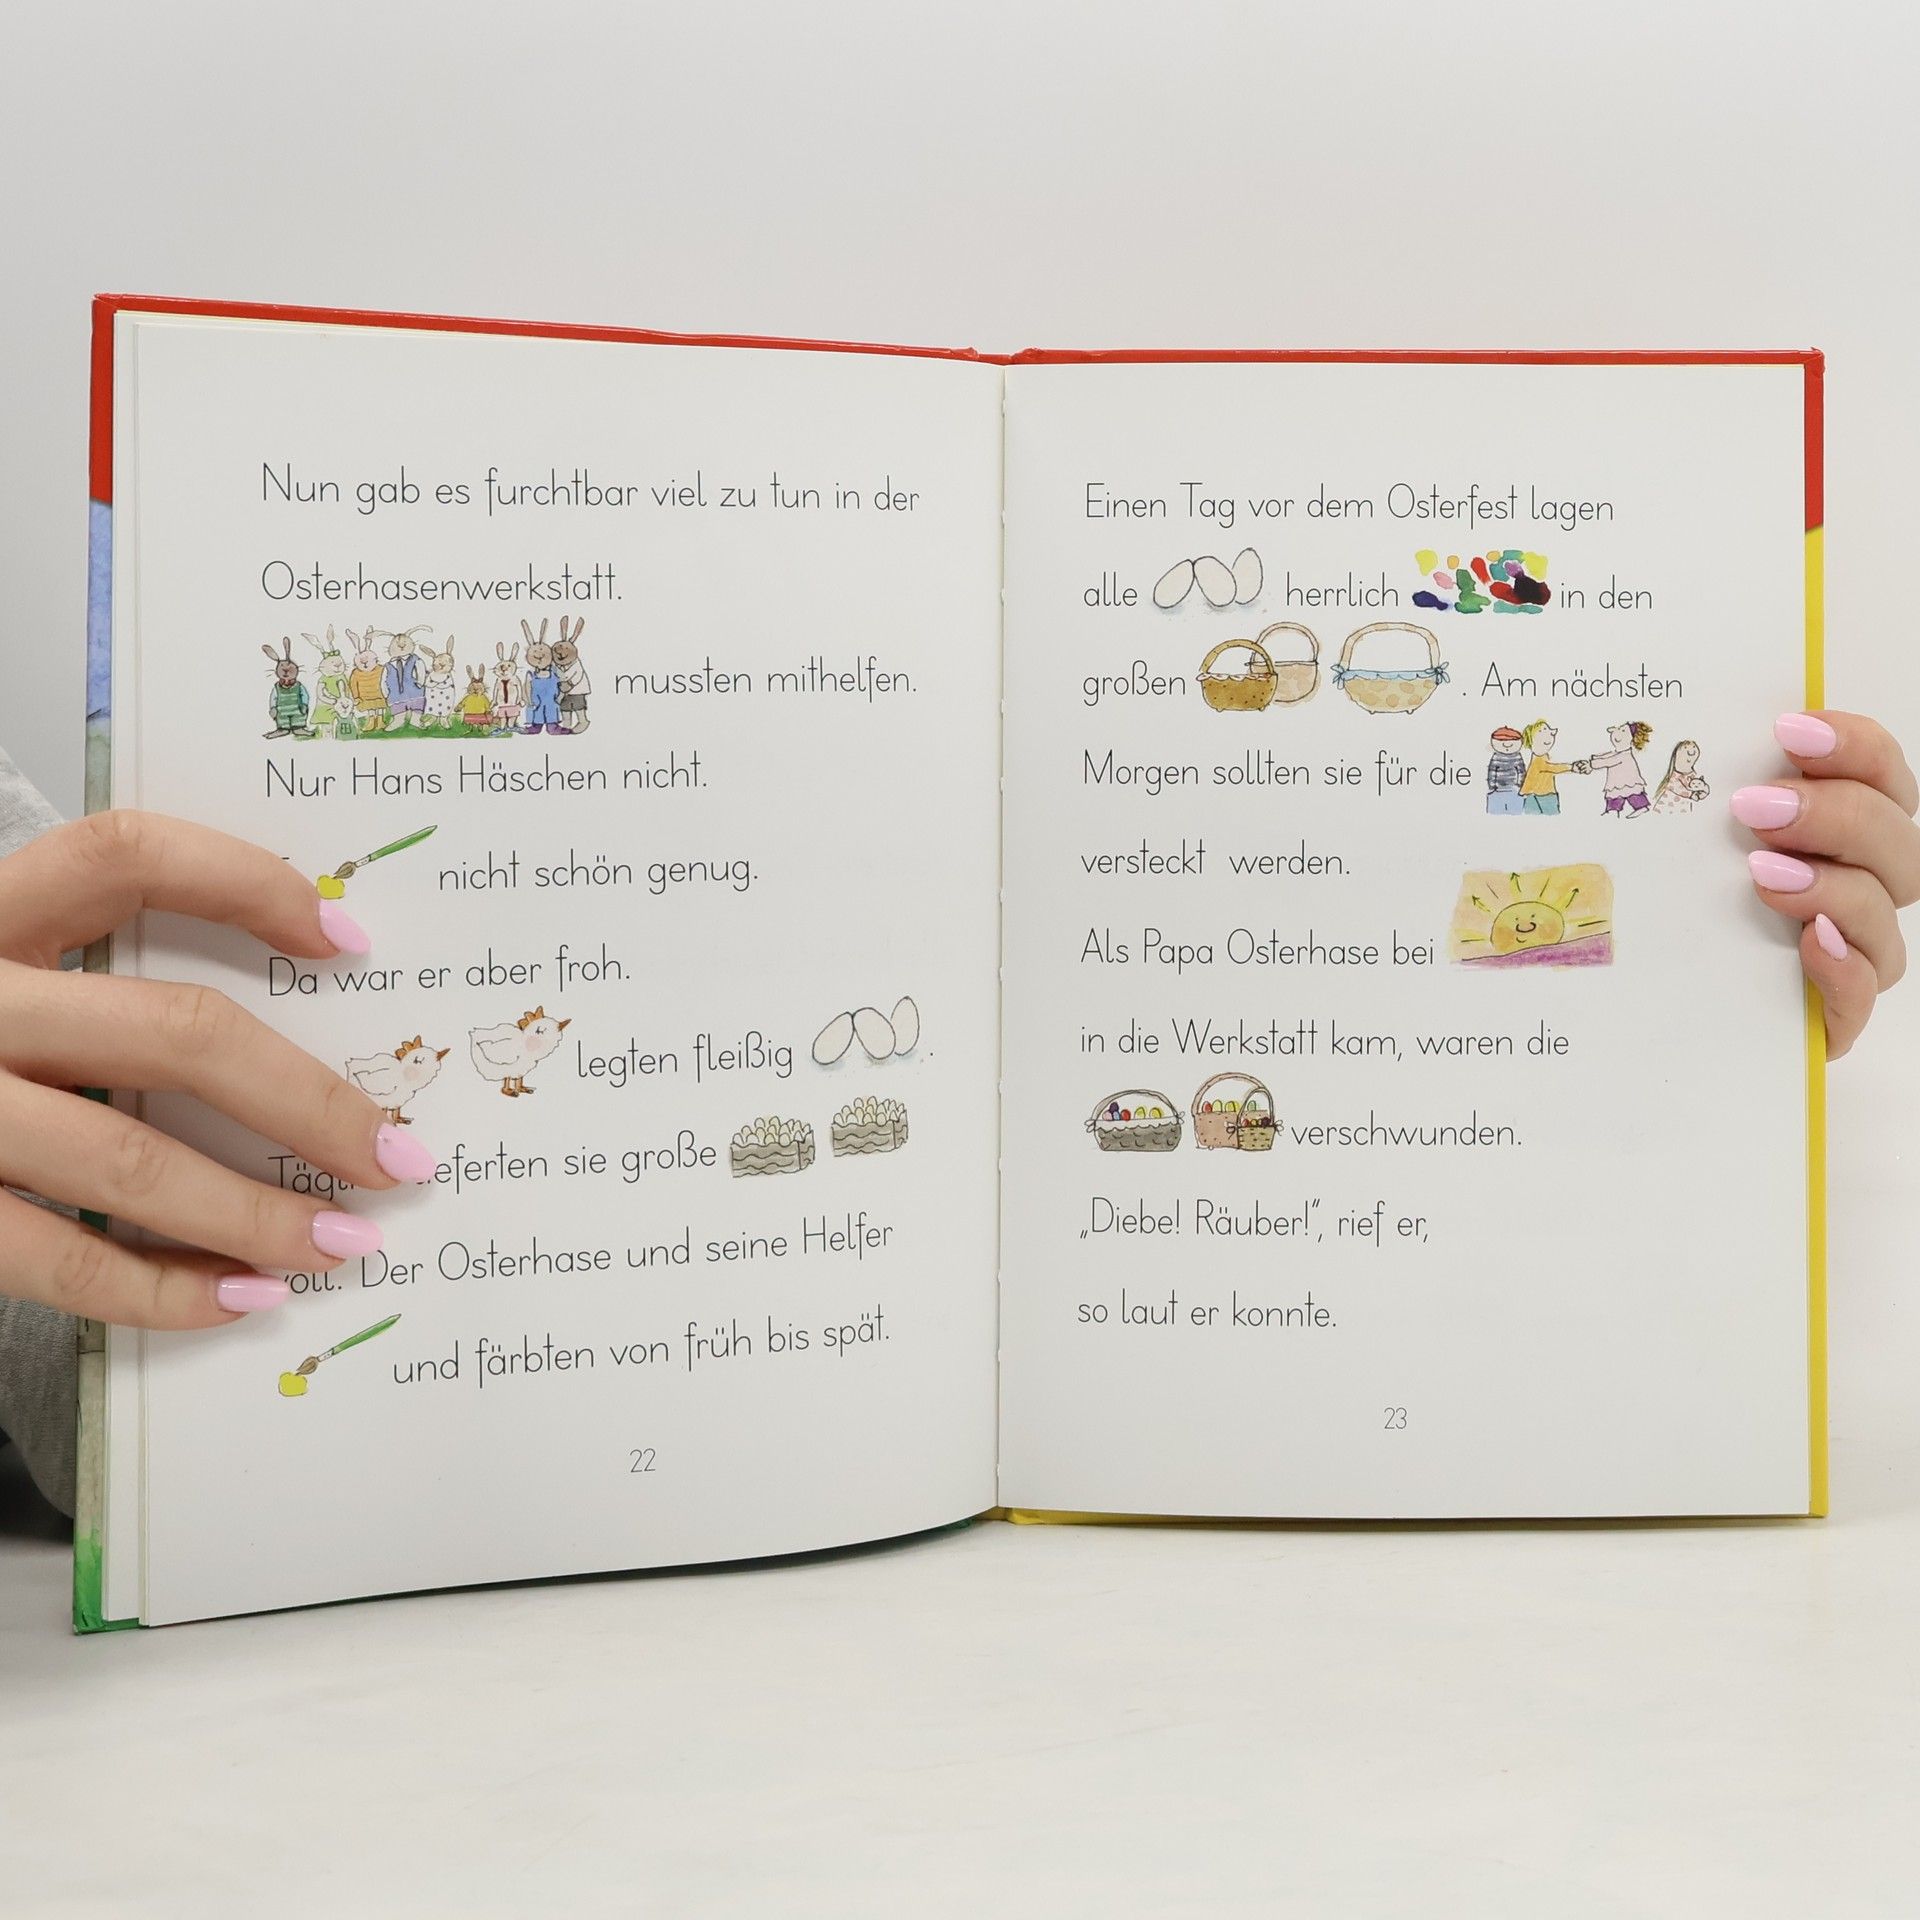 Nun gab es furchtbar viel zu tun in der
Osterhasenwerkstatt.
mussten mithelfen.
Nur Hans Häschen nicht.
nicht schön genug.
Da war er aber froh.
legten fleißig .
sie große
Der Osterhase und seine Helfer
und färbten von früh bis spät.
22
Einen Tag vor dem Osterfest lagen
alle herrlich in den
großen . Am nächsten
Morgen sollten sie für die
versteckt werden.
Als Papa Osterhase bei
in die Werkstatt kam, waren die
verschwunden.
„Diebe! Räuber!“, rief er,
so laut er konnte.
23